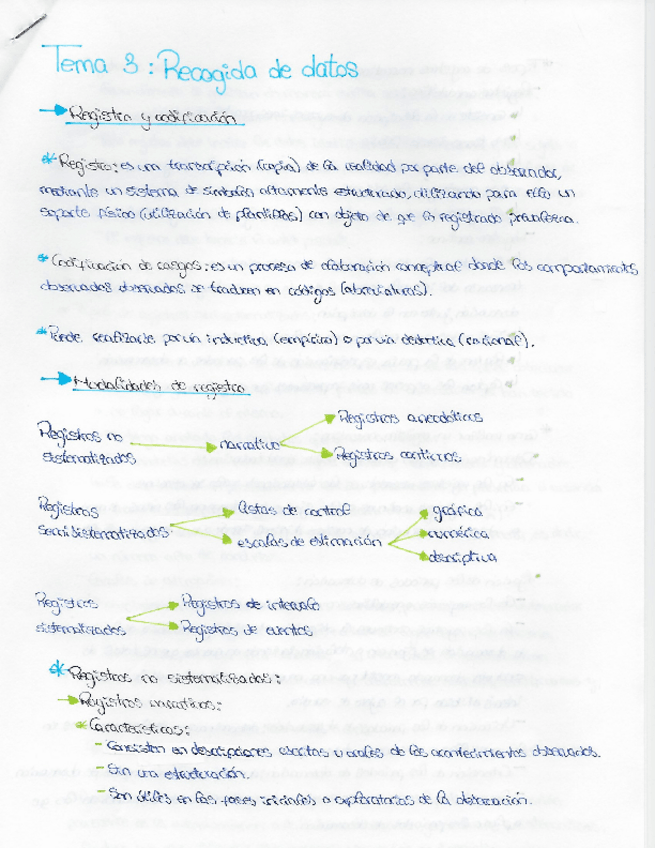 Tema 3: Recogida de datos
Registro y codificación
* Registro: es una transcripción (copia) de la realidad por parte del observador,
mediante un sistema de símbolos altamente estructurado, utilizando para ello un
soporte físico (utilización de plantillas) con objeto de que lo registrado
* Codificación de rasgos: es un proceso de elaboración conceptual donde los comportamientos
observados observados se traducen en códigos (abreviaturas).
* Puede realizarse por vía inductiva (empírica) o por vía deductiva (racional).
Modalidades de registro
Registros no sistematizados → narrativo → Registros anecdóticos
Registros continuos
Registros semisistematizados → listas de control
escalas de estimación → gráfica
numérica
descriptiva
Registros sistematizados → Registros de intervalo
Registros de eventos
* Registros no sistematizados:
→ Registros narrativos:
* Características:
- Consisten en descripciones escritas u orales de los acontecimientos observados.
- Sin una estructuración.
- Son útiles en las fases iniciales o exploratorias de la observación.